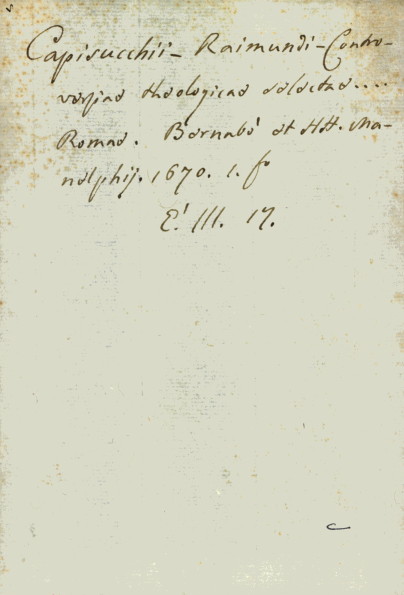 Capisucchii - Raimundi - Contro-
versiae theologicae selectae....
Romae. Bernabò et HH. Ma-
nelphij. 1670. 1. fo
E! III. 17.
c